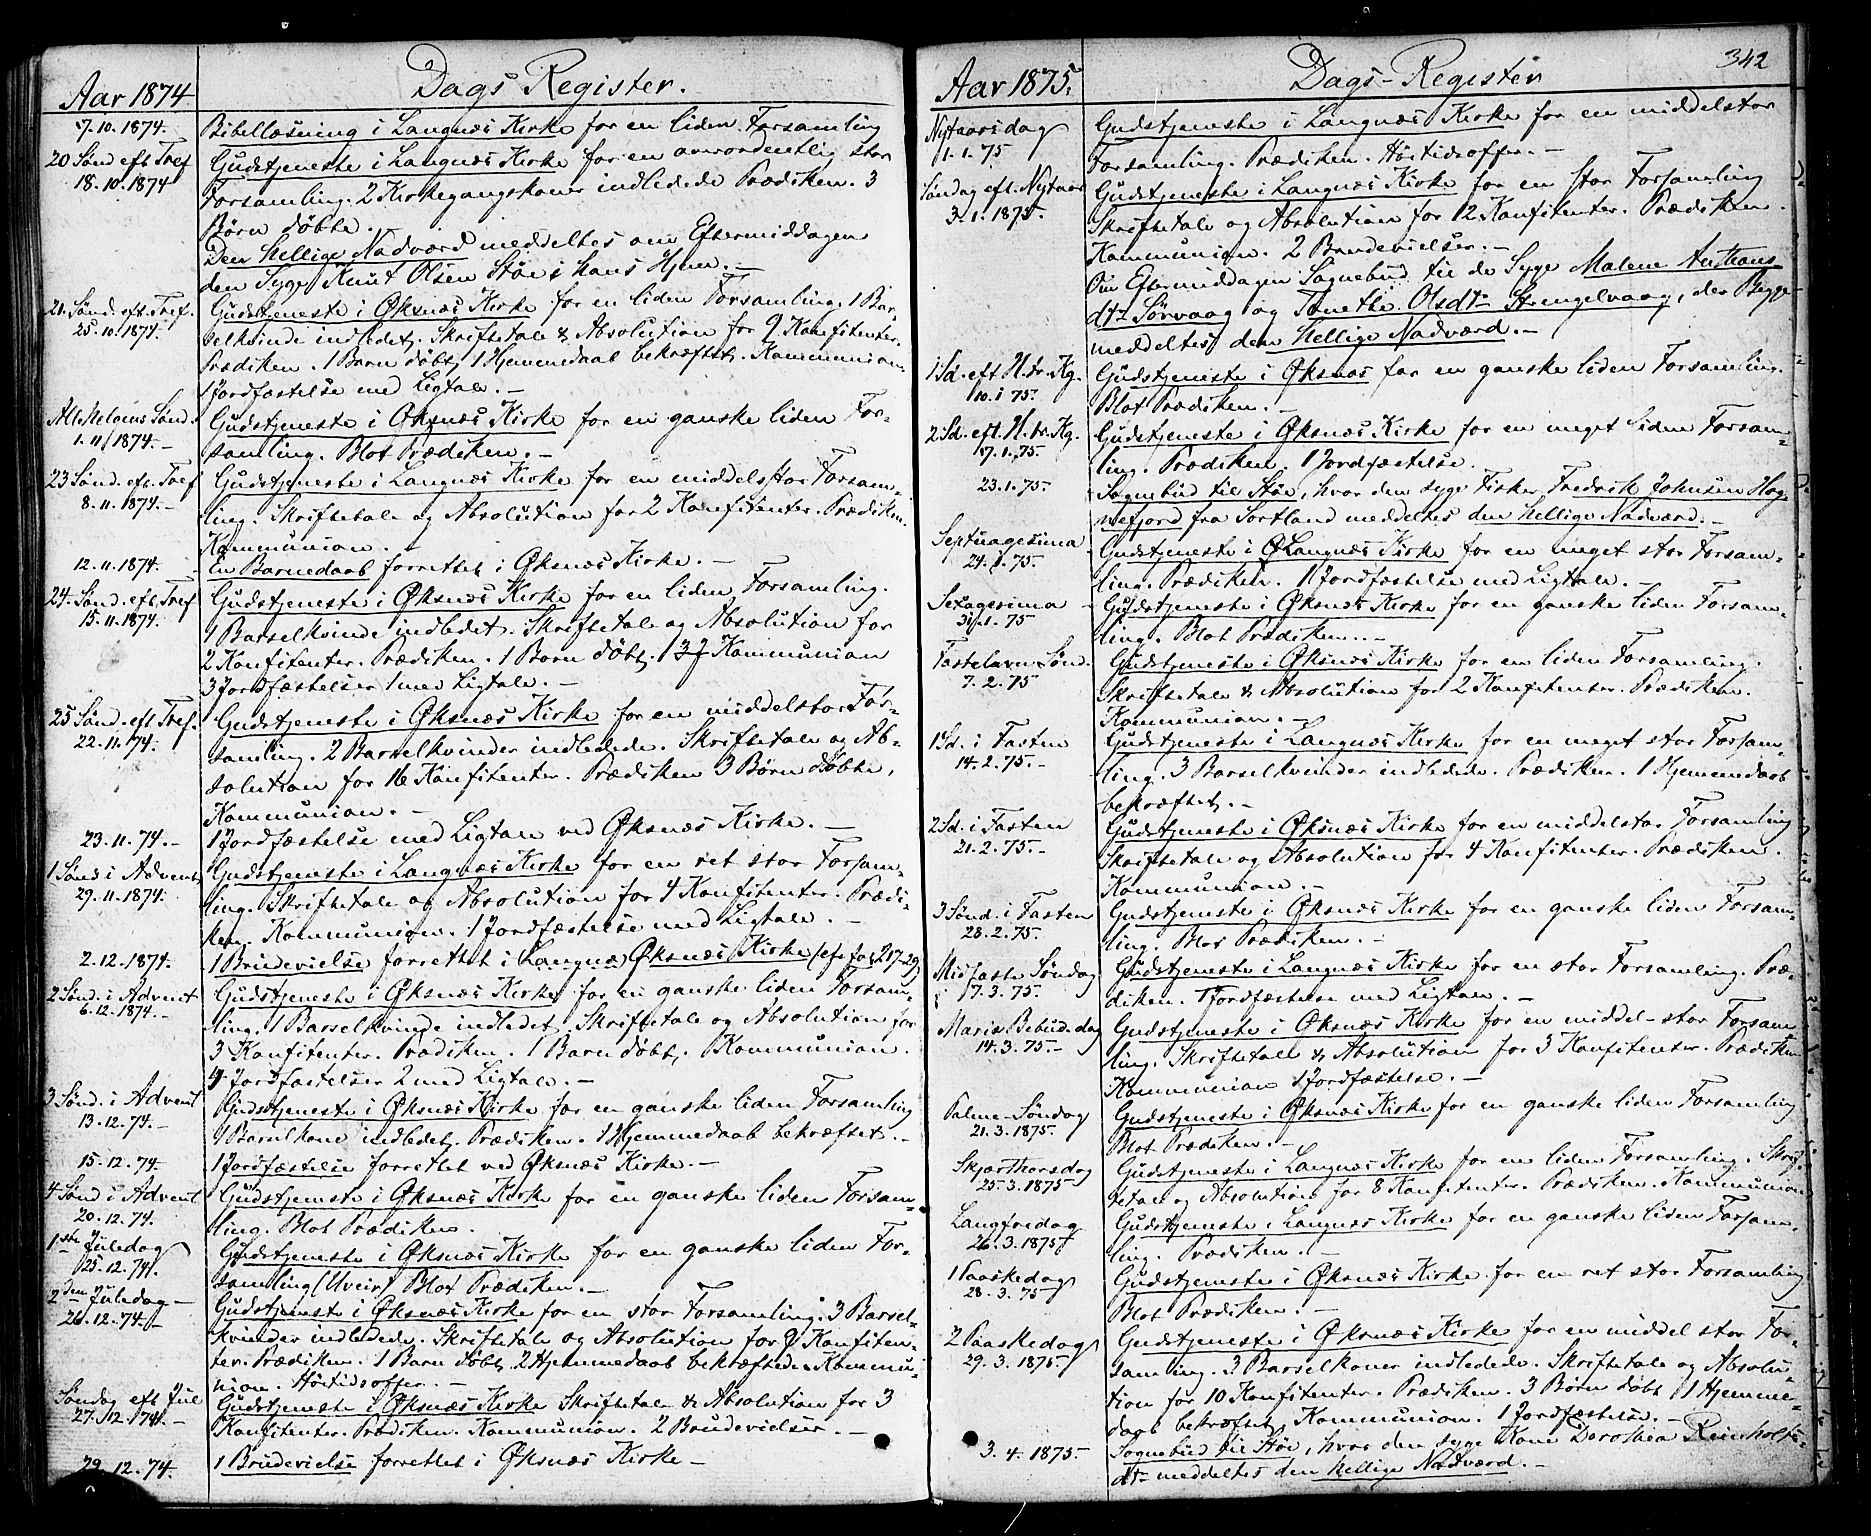 Aar 1874
Dags Register.
17.10.1874.
Bibellæsning i Langnæs Kirke for en liden Forsamling
20 Sønd eft Tref
18.10.1874
Gudstjeneste i Langnæs Kirke for en overordentlig stor
Forsamling. 2 Kirkegangskoner indledede Prædiken. 3
Børn døbte.
Den hellige Nadværd meddeltes om Eftermiddagen
den Syge Knut Olsen Støe i hans Hjem. —
21. Sønd. eft. Tref.
25.10.1874.
Gudstjeneste i Øksnæs Kirke for en liden Forsamling. 1 Bar-
selkvinde indledet. Skriftetale & Absolution for 9 Konfitenter.
Prædiken. 1 Barn døbt, 1 Hjemmedaab bekræftet. Kommunion.
1 Jordfæstelse med Ligtale. —
Alle Helgens Sønd.
1.11.1874. —
Gudstjeneste i Øksnæs Kirke for en ganske liden For-
samling. Blot Prædiken. —
23 Sønd. eft. Tref
8.11.1874. —
Gudstjeneste i Langnæs Kirke for en middelstor Forsam-
ling. Skriftetale og Absolution for 2 Konfitenter. Prædiken.
Kommunion. —
12.11.1874.
En Barnedaab forrettet i Øksnæs Kirke. —
24. Sønd. eft. Tref
15.11.1874.
Gudstjeneste i Øksnæs Kirke for en liden Forsamling.
1 Barselkvinde indledet. Skriftetale og Absolution for
2 Konfitenter. Prædiken. 1 Barn døbt. Kommunion
3 Jordfæstelser 1 med Ligtale. —
25 Sønd. eft Tref.
22.11.74.
Gudstjeneste i Øksnæs Kirke for en middelstor For-
samling. 2 Barselkvinder indledede. Skriftetale og Ab-
solution for 16 Konfitenter. Prædiken 3 Børn døbte,
Kommunion. —
23.11.74. —
1 Jordfæstelse med Ligtale ved Øksnæs Kirke. —
1 Sønd i Advent
29.11.1874.
Gudstjeneste i Langnæs Kirke for en ret stor Forsam-
ling. Skriftetale og Absolution for 4 Konfitenter. Prædi-
ken. Kommunion. 1 Jordfæstelse med Ligtale. —
2.12.1874.
1 Brudevielse forrettet i Langnæs Øksnæs Kirke
2 Sønd. i Advent
6.12.1874. —
Gudstjeneste i Øksnæs Kirke for en ganske liden Forsam-
ling. 1 Barselkvinde indledet. Skriftetale og Absolution for
3 Konfitenter. Prædiken. 1 Barn døbt. Kommunion.
4 Jordfæstelser 2 med Ligtale. —
3 Sønd. i Advent
13.12.74. —
Gudstjeneste i Øksnæs Kirke for en ganske liden Forsamling
1 Barselkone indledet. Prædiken. 1 Hjemmedaab bekræftet. —
15.12.74. —
1 Jordfæstelse forrettet ved Øksnæs Kirke. —
4 Sønd i Advent
20.12.74.
Gudstjeneste i Øksnæs Kirke for en ganske liden Forsam-
ling. Blot Prædiken.
1ste Juledag
25.12.74.
Gudstjeneste i Øksnæs Kirke for en ganske liden For-
samling (Uveir) Blot Prædiken. —
2den Juledag —
26.12.74. —
Gudstjeneste i Øksnæs Kirke for en stor Forsamling. 3 Barsel-
kvinder indledede. Skriftetale og Absolution for 9 Konfiten-
ter. Prædiken. 1 Barn døbt, 2 Hjemmedaab bekræftede. Kommu-
nion. Høitidsoffer. —
Søndag eft Jul
27.12.1874. —
Gudstjeneste i Øksnæs Kirke Skriftetale & Absolution for 3
Konfitenter. Prædiken. Kommunion. 2 Brudevielser. —
29.12.74.
1 Brudevielse forrettet i Øksnæs Kirke —
Aar 1875.
Dags-Register
342
Nytaarsdag
1.1.75
Gudstjeneste i Langnæs Kirke for en middelstor
Forsamling. Prædiken. Høitidsoffer. —
Søndag eft. Nytaar
3.1.1875.
Gudstjeneste i Langnæs Kirke for en stor Forsamling
Skriftetale og Absolution for 12 Konfitenter. Prædiken.
Kommunion. 2 Brudevielser. —
Om Eftermiddagen Sognebud til de Syge Malene Anthons
dtr Sørvaag og Tonethe Olsdtr Strengelvaag, der Begge
meddeltes den hellige Nadværd. —
1 Sd. eft H. tr. Kg.
10.1 75.
Gudstjeneste i Øksnæs for en ganske liden Forsamling.
Blot Prædiken. —
2 Sd. eft. H. tr. Kg.
17.1.75.
Gudstjeneste i Øksnæs Kirke for en meget liden Forsam-
ling. Prædiken, 1 Jordfæstelse.
23.1.75.
Sognebud til Støe, hvor den syge Fisker Fredrik Johnsen Hog-
nefjord fra Sortland meddeltes den hellige Nadværd. —
Septuagesima
24.1.75.
Gudstjeneste i Langnæs Kirke for en meget stor Forsam-
ling. Prædiken. 1 Jordfæstelse med Ligtale. —
Sexagesima
31.1.75
Gudstjeneste i Øksnæs Kirke for en ganske liden Forsam-
ling. Blot Prædiken. —
Fastelavns Sønd.
7.2.75
Gudstjeneste i Øksnæs Kirke for en liden Forsamling.
Skriftetale & Absolution for 2 Konfitenter. Prædiken.
Kommunion. —
1 Sd. i Fasten
14.2.75. —
Gudstjeneste i Langnæs Kirke for en meget stor Forsam-
ling. 3 Barselkvinder indledede. Prædiken. 1 Hjemmedaab
bekræftet. —
2 Sd. i Fasten
21.2.75. —
Gudstjeneste i Øksnæs Kirke for en middelstor Forsamling
Skriftetale og Absolution for 4 Konfitenter. Prædiken.
Kommunion. —
3 Sønd. i Fasten
28.2.75.
Gudstjeneste i Øksnæs Kirke for en ganske liden Forsam-
ling. Blot Prædiken. —
Midfaste Søndag
7.3.75.
Gudstjeneste i Langnæs Kirke for en stor Forsamling. Præ-
diken. 1 Jordfæstelse med Ligtale. —
Mariæ Bebud. dag
14.3.75. —
Gudstjeneste i Øksnæs Kirke for en middel-stor Forsam-
ling. Skriftetale & Absolution for 3 Konfitenter. Prædiken
Kommunion 1 Jordfæstelse. —
Palme-Søndag
21.3.1875.
Gudstjeneste i Øksnæs Kirke for en ganske liden Forsamling
Blot Prædiken. —
Skjærthorsdag
25.3.1875
Gudstjeneste i Langnæs Kirke for en liden Forsamling. Skrif-
tetale og Absolution for 8 Konfitenter. Prædiken. Kommunion
Langfredag
26.3.1875
Gudstjeneste i Langnæs Kirke for en ganske liden Forsam-
ling. Prædiken. —
1 Paaskedag
28.3.75
Gudstjeneste i Øksnæs Kirke for en ret stor Forsamling
Blot Prædiken. —
2 Paaskedag
29.3.1875
Gudstjeneste i Øksnæs Kirke for en middel stor For-
samling. 3 Barselkoner indledede. Skriftetale og Absolu-
tion for 10 Konfitenter. Prædiken. 3 Børn døbt 1 Hjemme-
daab bekræftet, Kommunion. 1 Jordfæstelse. —
3.4.1875.
Sognebud til Støe, hvor den syge Kone Dorothea Reinholts-
dtr meddeltes den hellige Nadværd. —